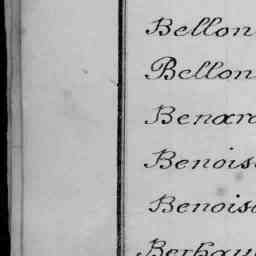 Bellon
Bellon
Benar
Benois
Benois
Berhau